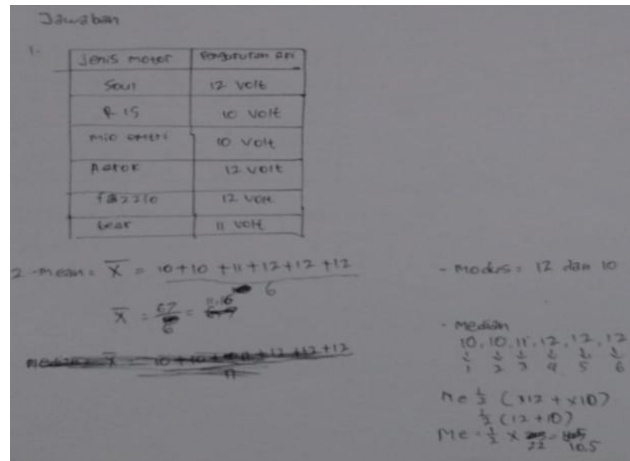 Jawaban
1.
Jenis motor Pengukuran aki
Soul 12 Volt
R 15 10 Volt
mio 10 Volt
Aerok 12 Volt
fazzio 12 Volt
Gear 11 Volt
2 - Mean = X̄ = 10 + 10 + 11 + 12 + 12 + 12
6
X̄ = 67 = 11.16
6
X̄ = 10 + 10 + 11 + 12 + 12 + 12
- Modus = 12 dan 10
- Median
10, 10, 11, 12, 12, 12
↓ ↓ ↓ ↓ ↓ ↓
1 2 3 4 5 6
Me ½ (x12 + x10)
½ (12 + 10)
Me = ½ x 22 = 10.5